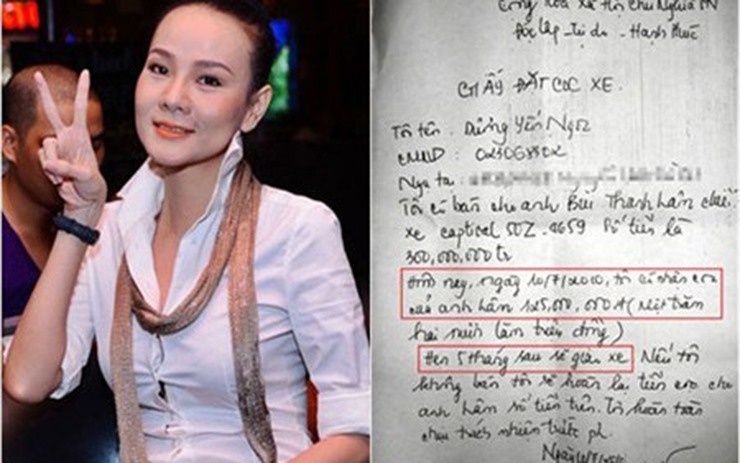 Cộng hòa xã hội chủ nghĩa VN
Độc lập - Tự do - Hạnh Phúc
GIẤY ĐẶT CỌC XE.
Tôi tên : Dương Yến Ngọc
CMND : 023068502
Ngụ tại :
Tôi có bán cho anh Bùi Thanh Hân chiếc
xe captical 50Z-4659 số tiền là
300,000,000 tr
Hôm nay, ngày 10/7/2010, tôi có nhận cọc
của anh hân 125,000,000đ (một trăm
hai mươi lăm triệu đồng)
Hẹn 5 tháng sau sẽ giao xe Nếu tôi
không bán tôi sẽ hoàn lại tiền cọc cho
anh hân số tiền trên. Tôi hoàn toàn
chịu trách nhiệm trước pl.